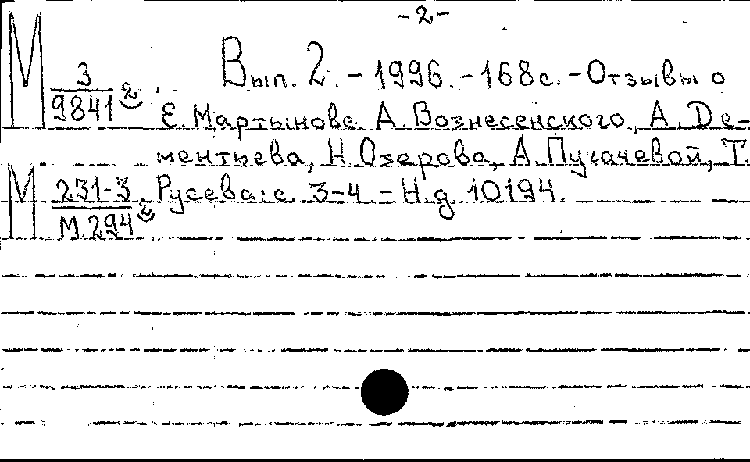 -2-
М 3/9841 2. Вып. 2. - 1996. - 168с. - Отзывы о
Е. Мартынове А. Вознесенского, А. Де-
ментьева, Н. Озерова, А. Пугачевой, Т.
М 231-3/М 294 Русева: с. 3-4 - Нд 10194.